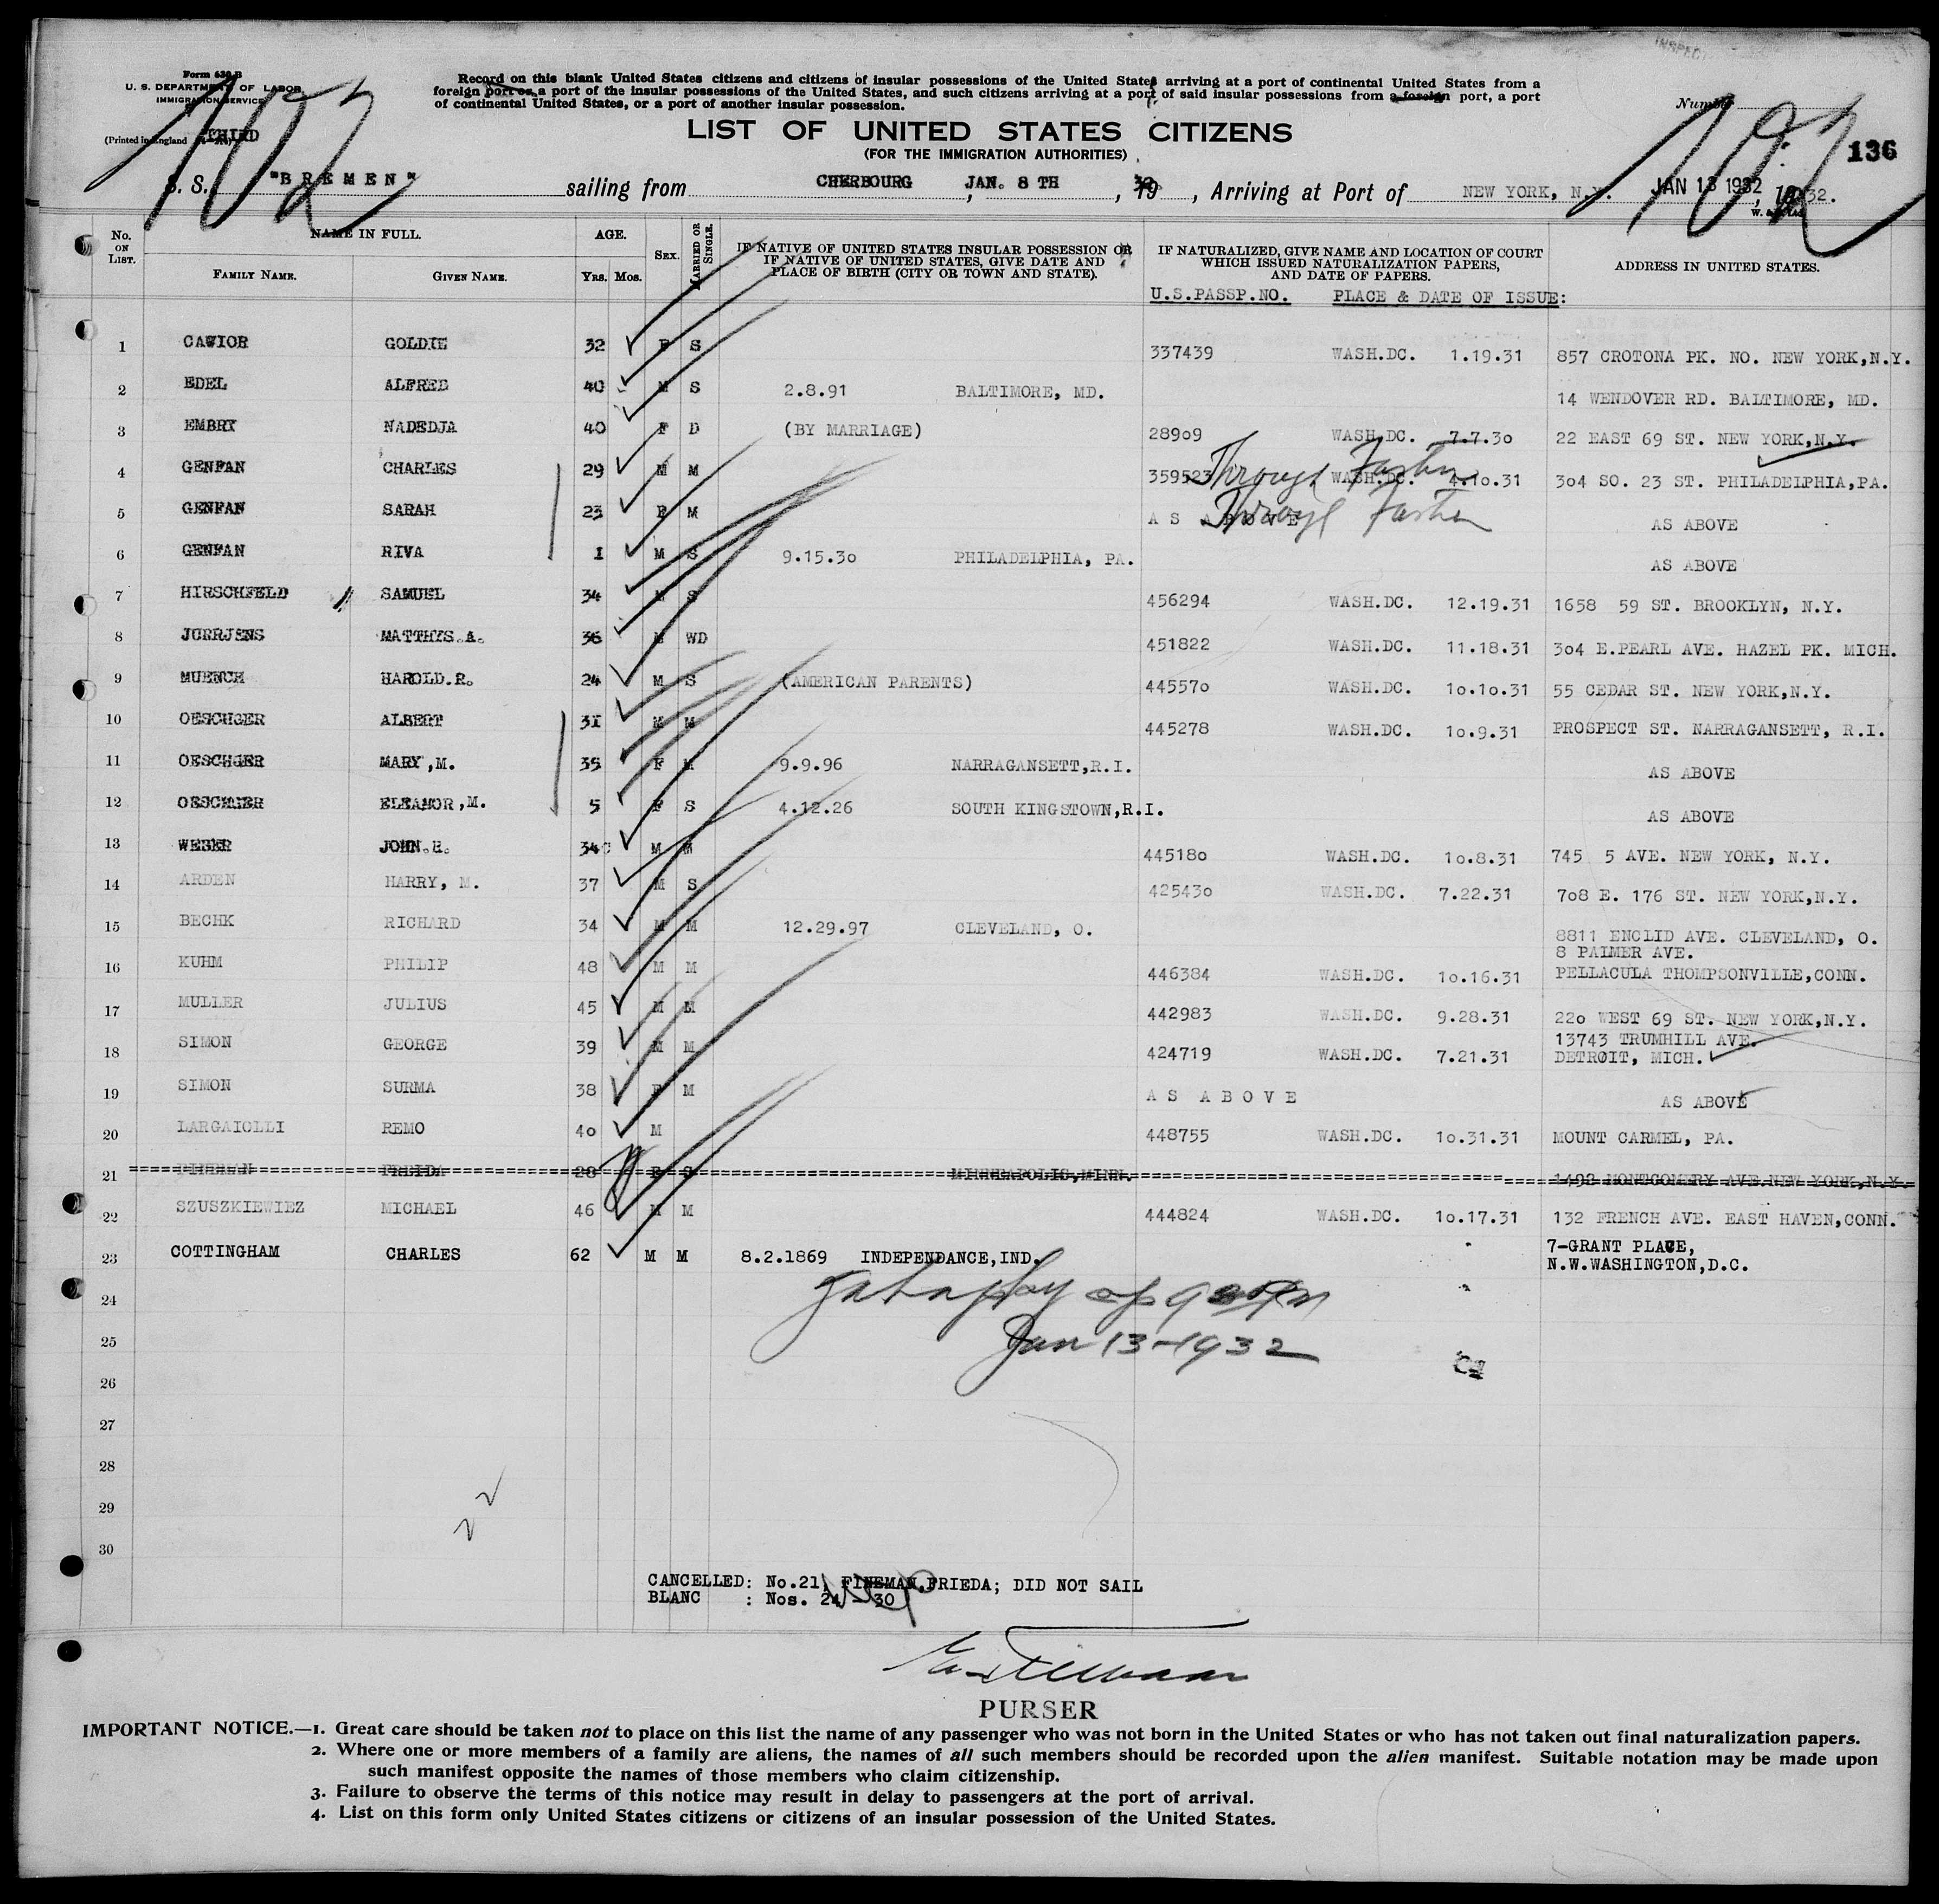 Form 630 B
U. S. DEPARTMENT OF LABOR
IMMIGRATION SERVICE
(Printed in England
THIRD
102
Record on this blank United States citizens and citizens of insular possessions of the United States arriving at a port of continental United States from a
foreign port or a port of the insular possessions of the United States, and such citizens arriving at a port of said insular possessions from a foreign port, a port
of continental United States, or a port of another insular possession.
Number
102
136
LIST OF UNITED STATES CITIZENS
(FOR THE IMMIGRATION AUTHORITIES)
S. S. "BREMEN" sailing from CHERBOURG, JAN. 8 TH, 1932, Arriving at Port of NEW YORK, N.Y. JAN 13 1932, 1932.
No. ON LIST. NAME IN FULL. AGE. SEX. MARRIED OR SINGLE. IF NATIVE OF UNITED STATES INSULAR POSSESSION OR IF NATIVE OF UNITED STATES, GIVE DATE AND PLACE OF BIRTH (CITY OR TOWN AND STATE). IF NATURALIZED, GIVE NAME AND LOCATION OF COURT WHICH ISSUED NATURALIZATION PAPERS, AND DATE OF PAPERS. ADDRESS IN UNITED STATES.
FAMILY NAME. GIVEN NAME. Yrs. Mos.
U.S.PASSP.NO. PLACE & DATE OF ISSUE:
1 CAWIOR GOLDIE 32 F S 337439 WASH.DC. 1.19.31 857 CROTONA PK. NO. NEW YORK,N.Y.
2 EDEL ALFRED 40 M S 2.8.91 BALTIMORE, MD. 14 WENDOVER RD. BALTIMORE, MD.
3 EMBRY NADEDJA 40 F D (BY MARRIAGE) 28909 WASH.DC. 7.7.30 22 EAST 69 ST. NEW YORK,N.Y.
4 GENFAN CHARLES 29 M M 359523 Through Father WASH.DC. 4.10.31 304 SO. 23 ST. PHILADELPHIA,PA.
5 GENFAN SARAH 23 F M AS ABOVE Through Father AS ABOVE
6 GENFAN RIVA 1 M S 9.15.30 PHILADELPHIA, PA. AS ABOVE
7 HIRSCHFELD SAMUEL 34 M S 456294 WASH.DC. 12.19.31 1658 59 ST. BROOKLYN, N.Y.
8 JURRJENS MATTHYS.A. 36 M WD 451822 WASH.DC. 11.18.31 304 E.PEARL AVE. HAZEL PK. MICH.
9 MUENCH HAROLD.R. 24 M S (AMERICAN PARENTS) 445570 WASH.DC. 10.10.31 55 CEDAR ST. NEW YORK,N.Y.
10 OESCHGER ALBERT 31 M M 445278 WASH.DC. 10.9.31 PROSPECT ST. NARRAGANSETT, R.I.
11 OESCHGER MARY,M. 35 F M 9.9.96 NARRAGANSETT,R.I. AS ABOVE
12 OESCHGER ELEANOR,M. 5 F S 4.12.26 SOUTH KINGSTOWN,R.I. AS ABOVE
13 WEBER JOHN.H. 34 M M 445180 WASH.DC. 10.8.31 745 5 AVE. NEW YORK, N.Y.
14 ARDEN HARRY, M. 37 M S 425430 WASH.DC. 7.22.31 708 E. 176 ST. NEW YORK,N.Y.
15 BECHK RICHARD 34 M M 12.29.97 CLEVELAND, O. 8811 ENCLID AVE. CLEVELAND, O.
16 KUHM PHILIP 48 M M 446384 WASH.DC. 10.16.31 8 PALMER AVE. PELLACULA THOMPSONVILLE,CONN.
17 MULLER JULIUS 45 M M 442983 WASH.DC. 9.28.31 220 WEST 69 ST. NEW YORK,N.Y.
18 SIMON GEORGE 39 M M 424719 WASH.DC. 7.21.31 13743 TRUMHILL AVE. DETROIT, MICH.
19 SIMON SURMA 38 F M AS ABOVE AS ABOVE
20 LARGAIOLLI REMO 40 M 448755 WASH.DC. 10.31.31 MOUNT CARMEL, PA.
21 FINEMAN FREIDA 28 F S MINNEAPOLIS,MINN. 1498 MONTGOMERY AVE.NEW YORK,N.Y.
22 SZUSZKIEWIEZ MICHAEL 46 M M 444824 WASH.DC. 10.17.31 132 FRENCH AVE. EAST HAVEN,CONN.
23 COTTINGHAM CHARLES 62 M M 8.2.1869 INDEPENDANCE,IND. 7-GRANT PLACE, N.W.WASHINGTON,D.C.
24
25 Jan 13-1932
26
27
28
29
30
CANCELLED: No.21, FINEMAN.FRIEDA; DID NOT SAIL
BLANC : Nos. 24 - 30
PURSER
IMPORTANT NOTICE.—1. Great care should be taken not to place on this list the name of any passenger who was not born in the United States or who has not taken out final naturalization papers.
2. Where one or more members of a family are aliens, the names of all such members should be recorded upon the alien manifest. Suitable notation may be made upon
such manifest opposite the names of those members who claim citizenship.
3. Failure to observe the terms of this notice may result in delay to passengers at the port of arrival.
4. List on this form only United States citizens or citizens of an insular possession of the United States.